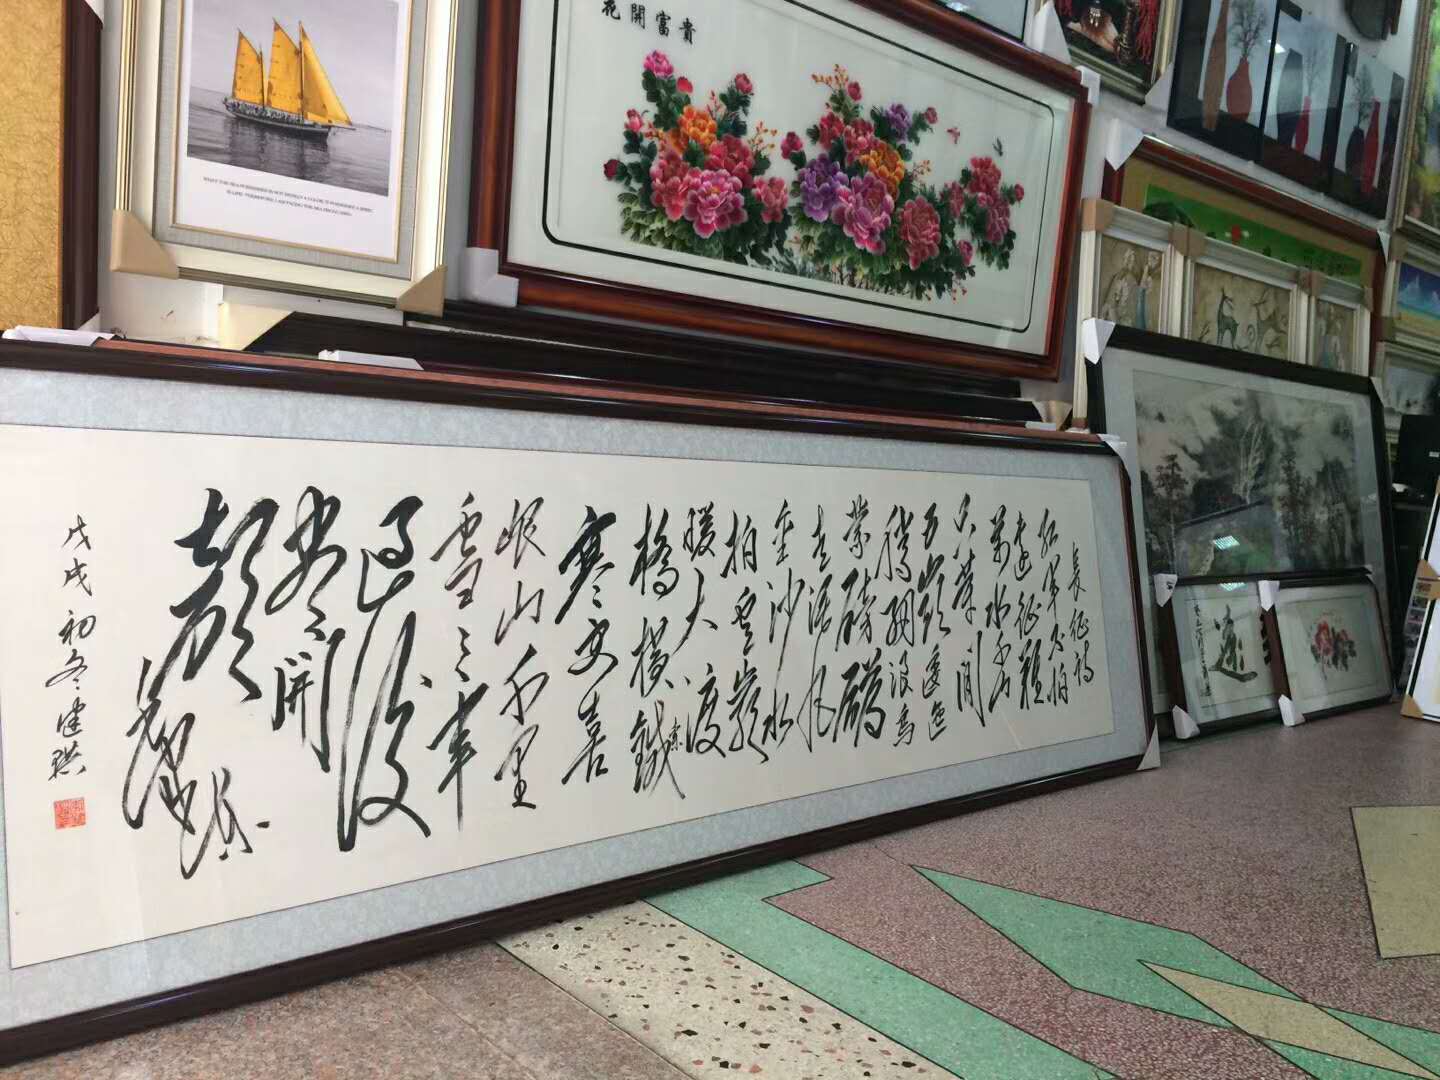 花開富貴
長征詩
紅軍不怕
遠征難
萬水千山
只等閒
五嶺逶迤
騰細浪烏
蒙磅礴
走泥丸
金沙水
拍雲崖
暖大渡
橋橫鐵索
寒更喜
岷山千里
雪三軍
過後
盡開
顏
戊戌初冬建